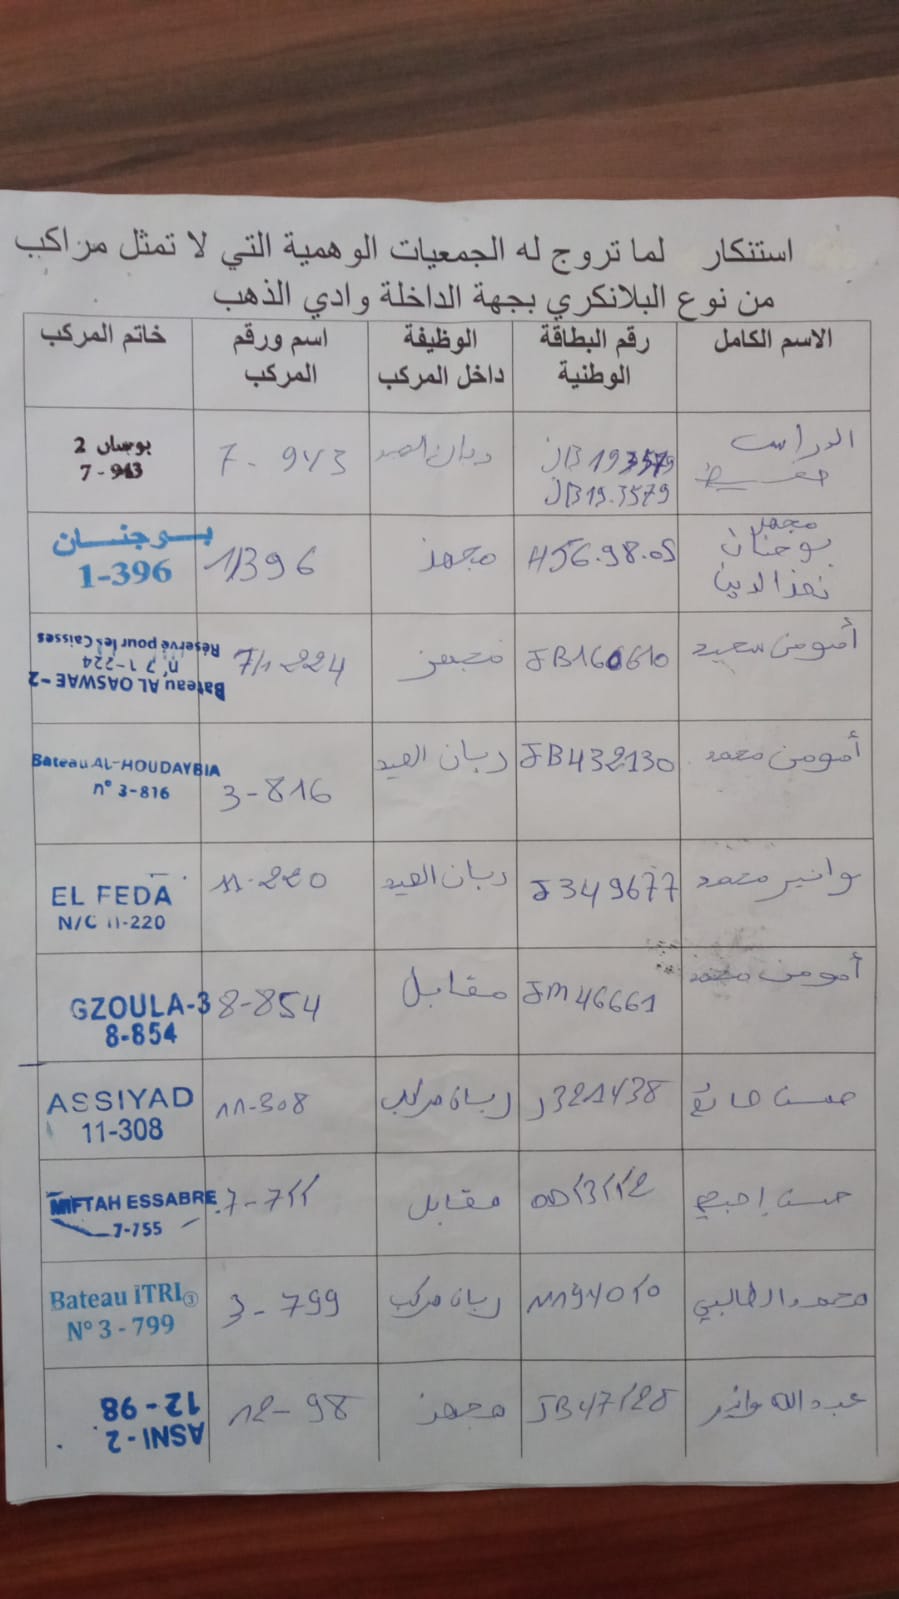 استنكار لما تروج له الجمعيات الوهمية التي لا تمثل مراكب
من نوع البلانكري بجهة الداخلة وادي الذهب
الاسم الكامل
رقم البطاقة
الوطنية
الوظيفة
داخل المركب
اسم ورقم
المركب
خاتم المركب
JB193579
JB19.3579
ربان الصيد
7-943
بوسان 2
7-943
مجهز
بوجنان
H56.98.05
مجهز
1/396
بوجنان
1-396
أمومن سعيد
JB160610
مجهز
7/1-224
Bateau AL QASWAE-2
n° 7 1-224
Réservé pour les Caisses
أمومن محمد
JB432130
ربان الصيد
3-816
Bateau AL-HOUDAYBIA
n° 3-816
وانير محمد
J349677
ربان الصيد
11-220
EL FEDA
N/C 11-220
أمومن محمد
JM46661
مقابل
8-854
GZOULA-3
8-854
حسن
J321438
ربان مركب
11-308
ASSIYAD
11-308
حسن
مقابل
MIFTAH ESSABRE
7-755
محمد الطالبي
ربان مركب
3-799
Bateau ITRI 3
N° 3-799
عبد الله وانير
مجهز
12-98
ASNI-2
12-98